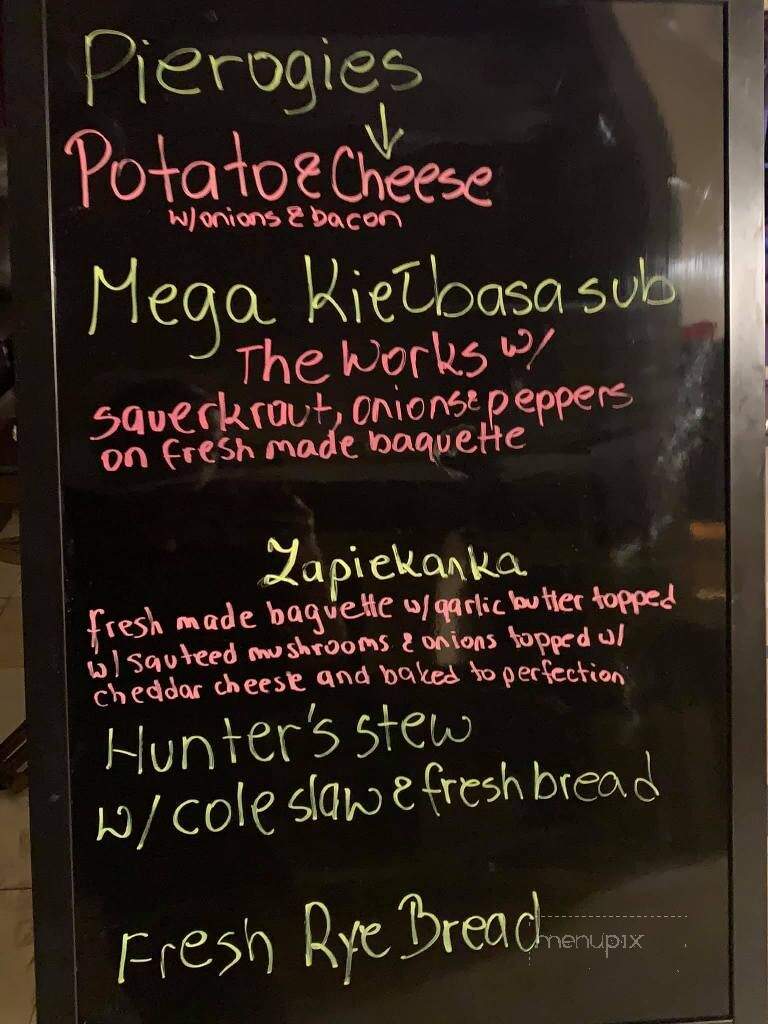 Pierogies
Potato & Cheese
w/onions & bacon
Mega Kiełbasa sub
The Works w/
sauerkraut, onions & peppers
on fresh made baguette
Zapiekanka
fresh made baguette w/garlic butter topped
w/ sauteed mushrooms & onions topped w/
cheddar cheese and baked to perfection
Hunter's stew
w/ cole slaw & fresh bread
Fresh Rye Bread
menupix